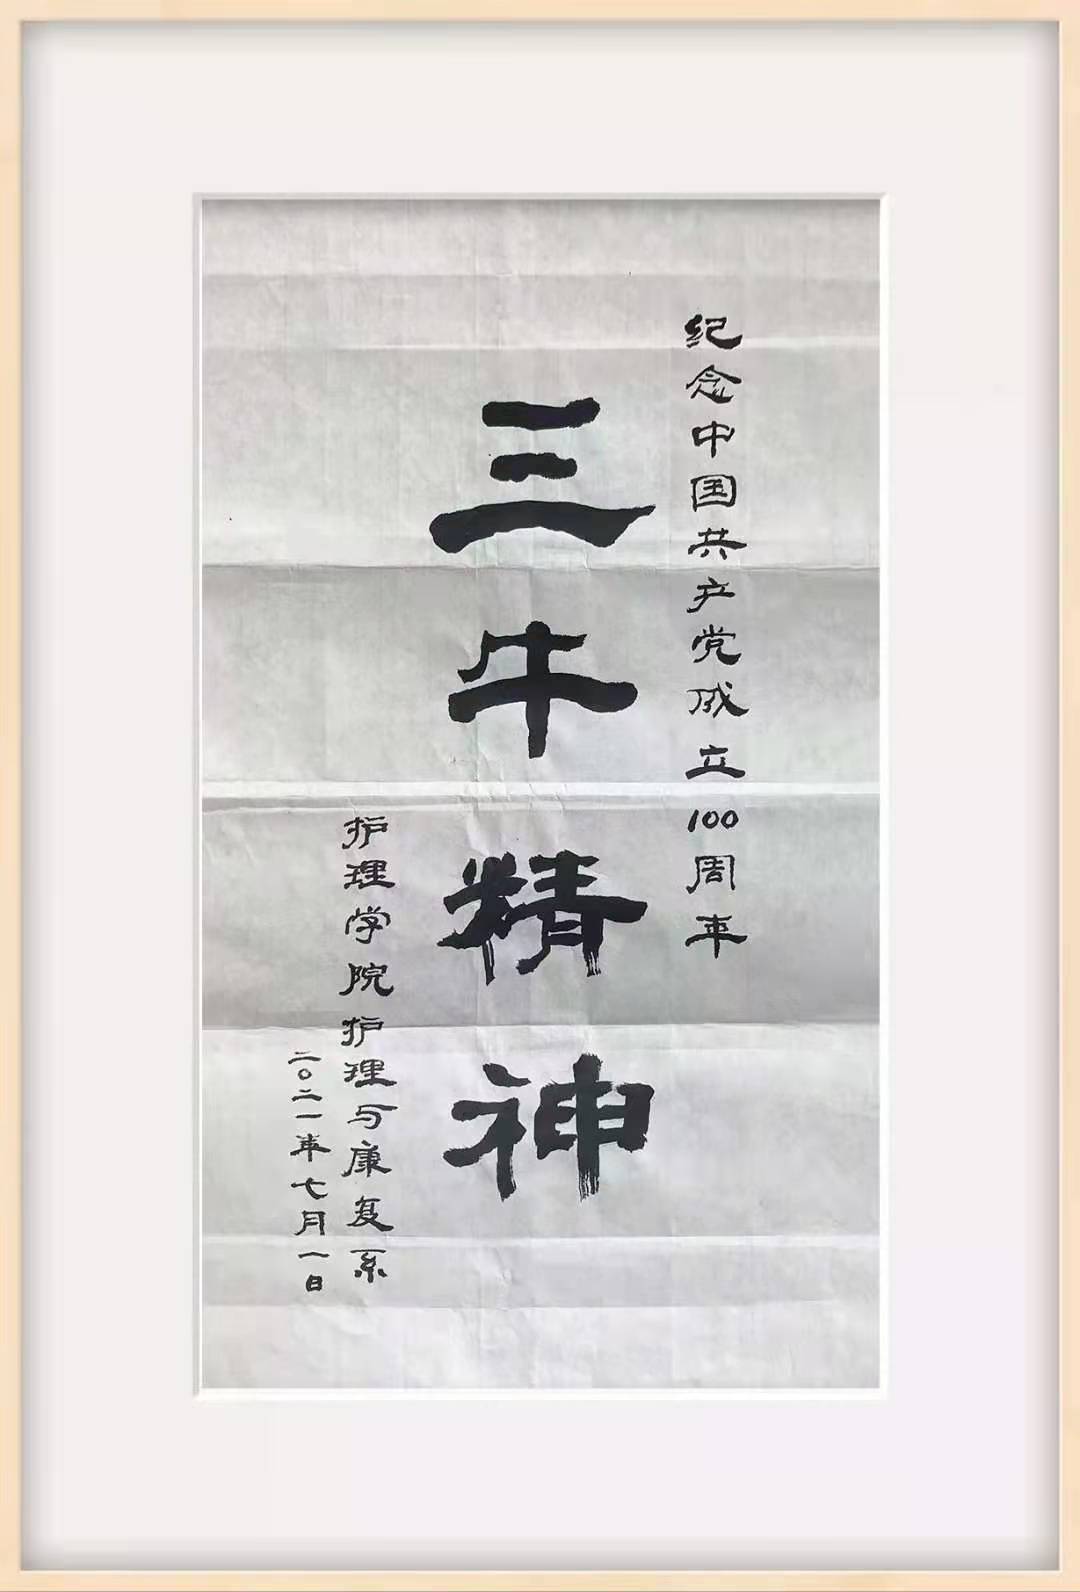 纪念中国共产党成立100周年
三牛精神
护理学院护理与康复系
二〇二一年七月一日